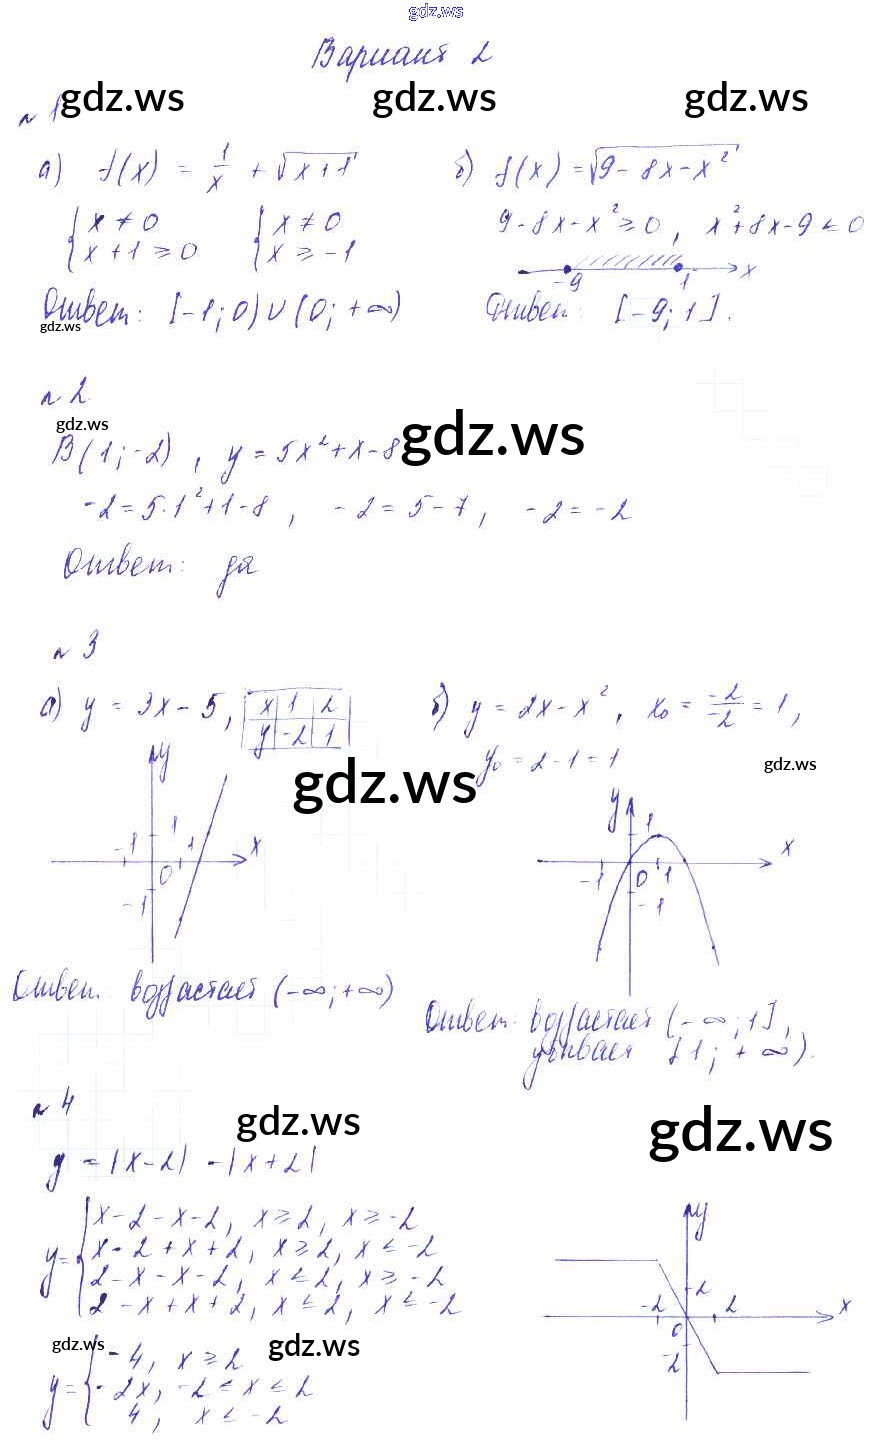 gdz.ws
Вариант 2
gdz.ws gdz.ws gdz.ws
№ 1
а) f(x) = 1/x + √(x+1)
{ x ≠ 0
x + 1 ≥ 0
{ x ≠ 0
x ≥ -1
Ответ: [-1; 0) ∪ (0; +∞)
gdz.ws
б) f(x) = √(9 - 8x - x²)
9 - 8x - x² ≥ 0, x² + 8x - 9 ≤ 0
-9 1 x
Ответ: [-9; 1].
№ 2
gdz.ws gdz.ws
B(1; -2), y = 5x² + x - 8
-2 = 5·1² + 1 - 8, -2 = 5 - 7, -2 = -2
Ответ: да
№ 3
а) y = 3x - 5,
x 1 2
y -2 1
gdz.ws
y
-1 1 1 x
0
-1
Ответ: возрастает (-∞; +∞)
б) y = 2x - x², x₀ = -2/-2 = 1,
y₀ = 2 - 1 = 1
gdz.ws
y
1 x
-1 0 1
-1
Ответ: возрастает (-∞; 1],
убывает [1; +∞).
№ 4
gdz.ws gdz.ws
y = |x - 2| - |x + 2|
y = { x - 2 - x - 2, x ≥ 2, x ≥ -2
x - 2 + x + 2, x ≥ 2, x ≤ -2
2 - x - x - 2, x ≤ 2, x ≥ -2
2 - x + x + 2, x ≤ 2, x ≤ -2
gdz.ws gdz.ws
y = { -4, x ≥ 2
-2x, -2 ≤ x ≤ 2
4, x ≤ -2
y
2
-2 2 x
0
-2